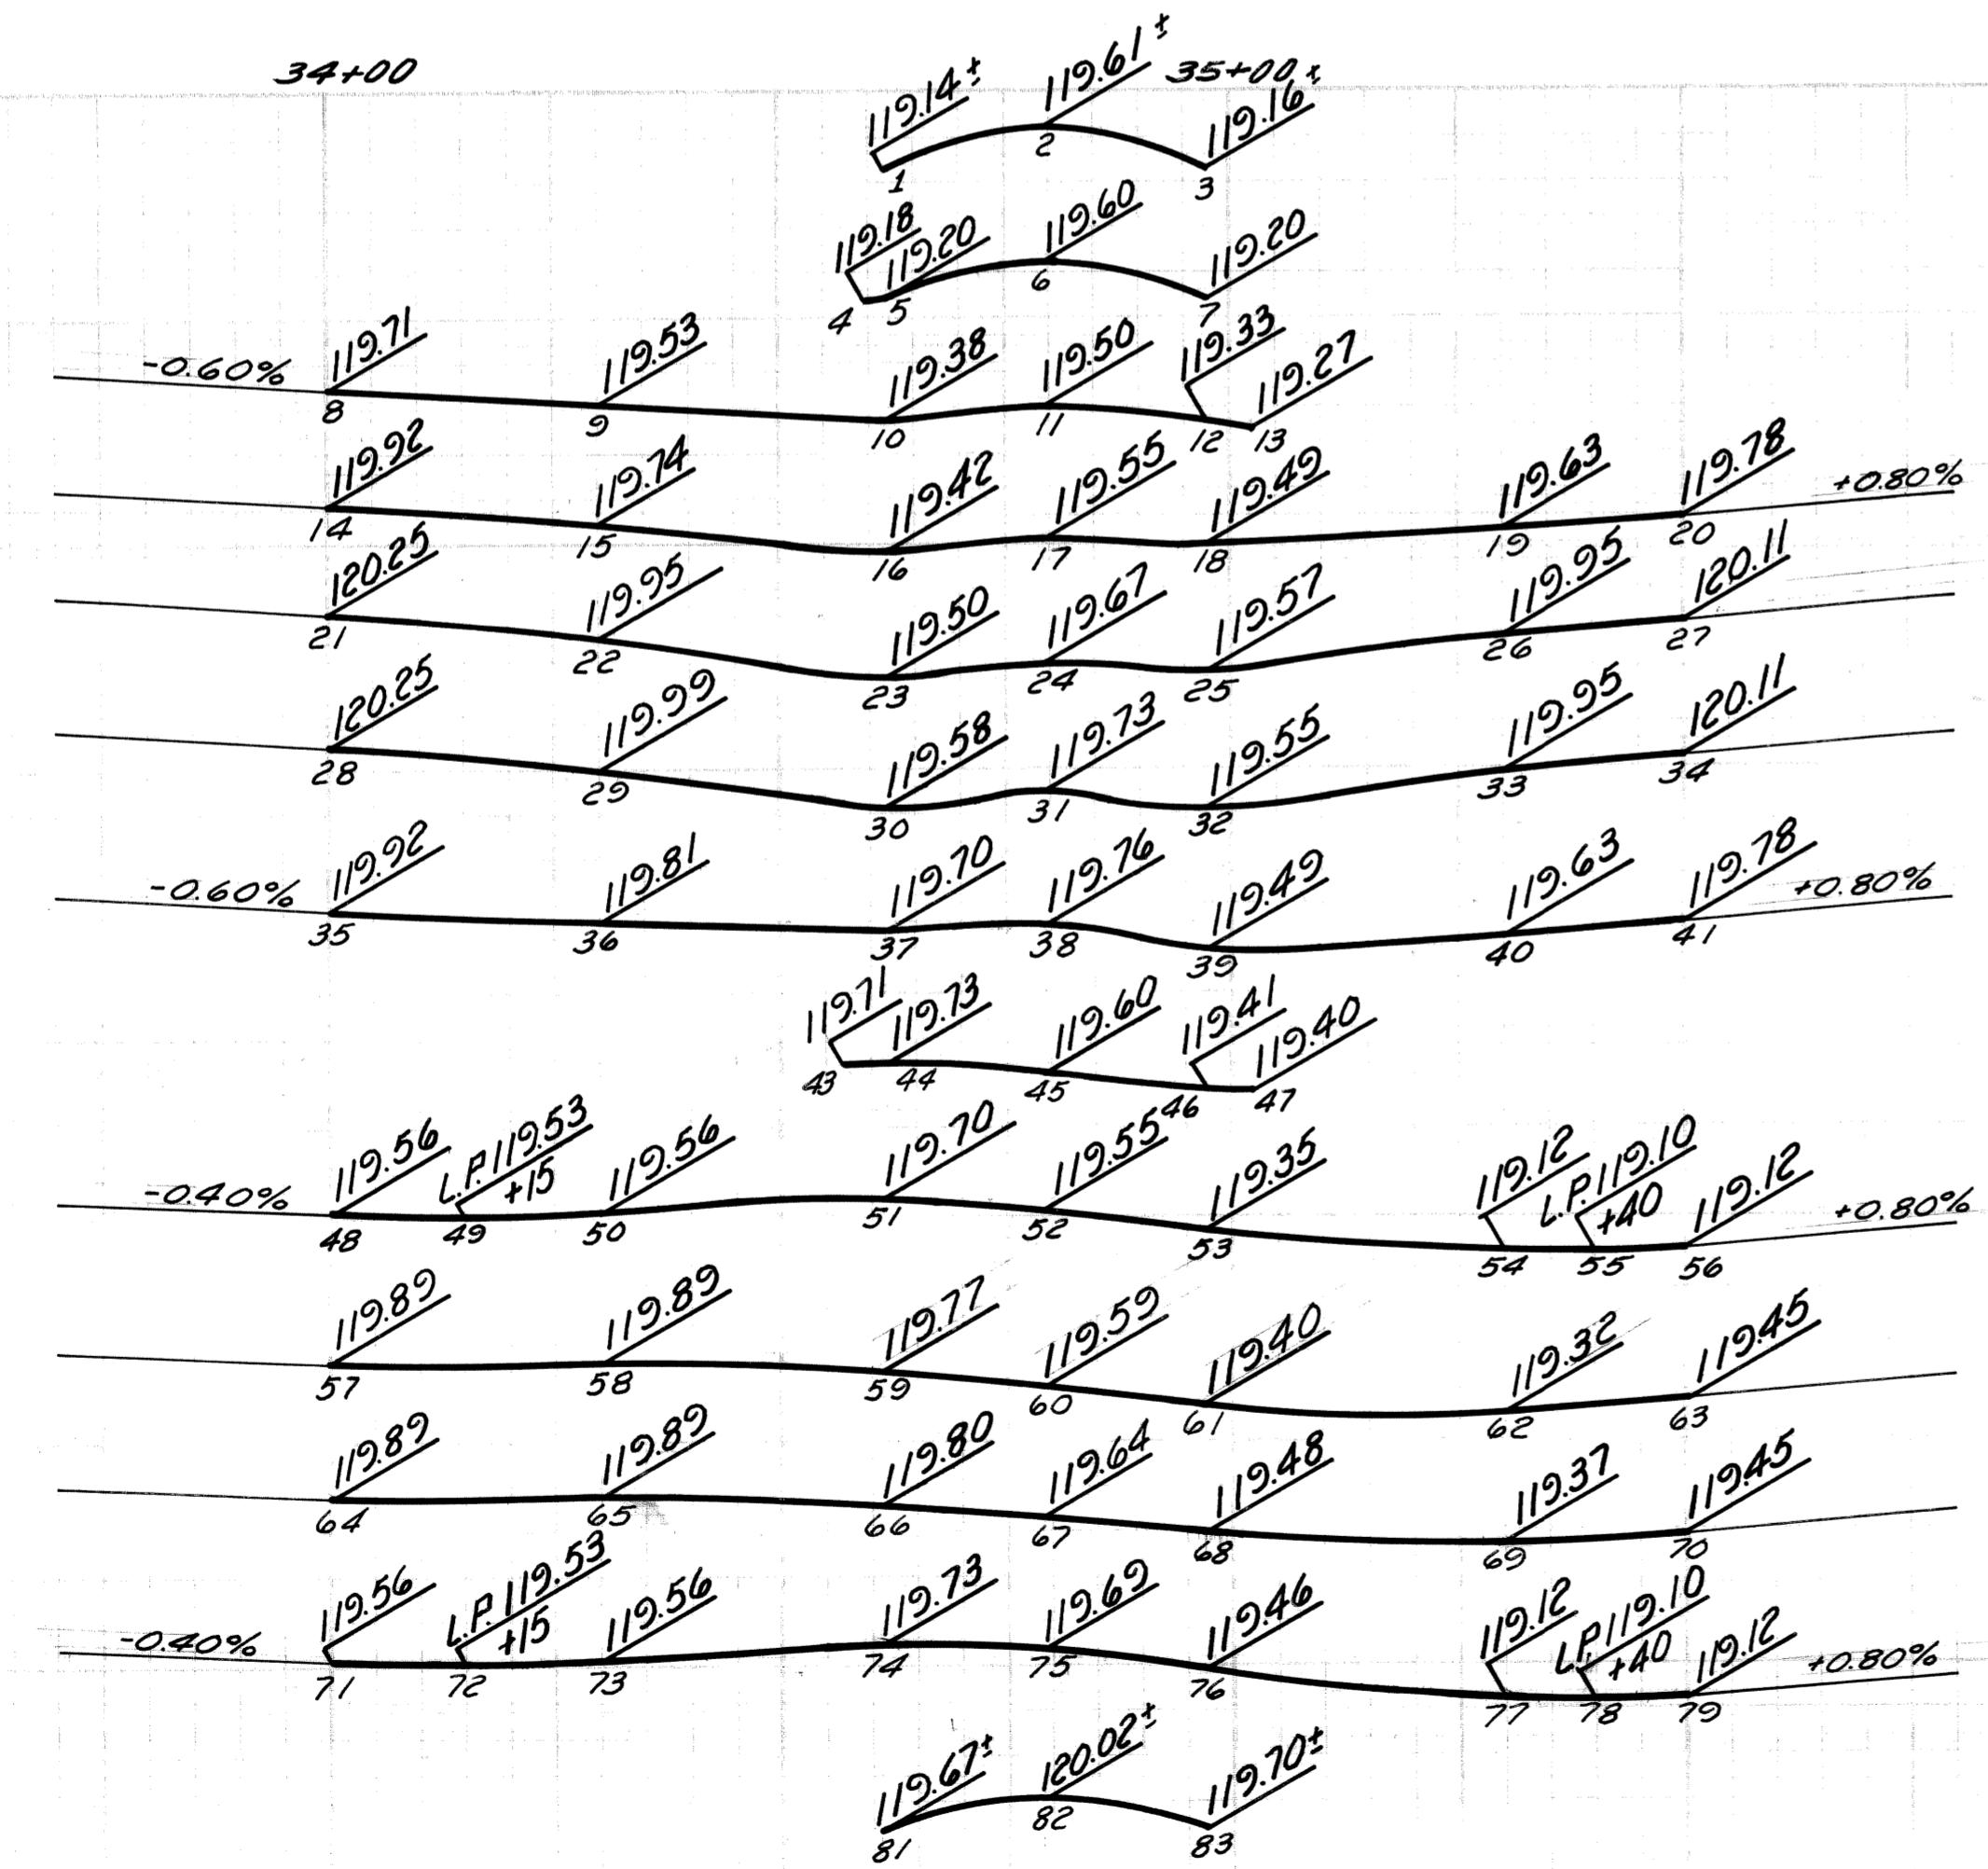 34+00 35+00 ±
119.14± 119.61± 119.16
1 2 3
119.18 119.20 119.60 119.20
4 5 6 7
-0.60% 119.71 119.53 119.38 119.50 119.33 119.27
8 9 10 11 12 13
119.92 119.74 119.42 119.55 119.49 119.63 119.78 +0.80%
14 15 16 17 18 19 20
120.25 119.95 119.50 119.67 119.57 119.95 120.11
21 22 23 24 25 26 27
120.25 119.99 119.58 119.73 119.55 119.95 120.11
28 29 30 31 32 33 34
-0.60% 119.92 119.81 119.70 119.76 119.49 119.63 119.78 +0.80%
35 36 37 38 39 40 41
119.71 119.73 119.60 119.41 119.40
43 44 45 46 47
-0.40% 119.56 L.P. 119.53 +15 119.56 119.70 119.55 119.35 119.12 L.P. 119.10 +40 119.12 +0.80%
48 49 50 51 52 53 54 55 56
119.89 119.89 119.77 119.59 119.40 119.32 119.45
57 58 59 60 61 62 63
119.89 119.89 119.80 119.64 119.48 119.37 119.45
64 65 66 67 68 69 70
-0.40% 119.56 L.P. 119.53 +15 119.56 119.73 119.69 119.46 119.12 L.P. 119.10 +40 119.12 +0.80%
71 72 73 74 75 76 77 78 79
119.67± 120.02± 119.70±
81 82 83